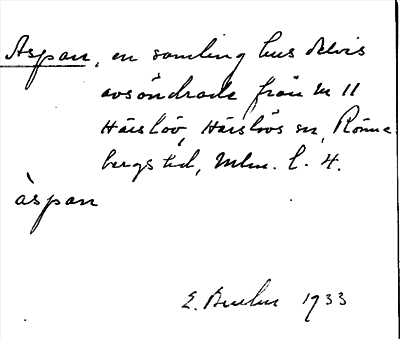 Aspan, en samling hus delvis
avsöndrade från nr 11
Härslöv, Härslövs sn, Rönne
bergs hd, Mlm. l. 4.
àspan
E. 1933